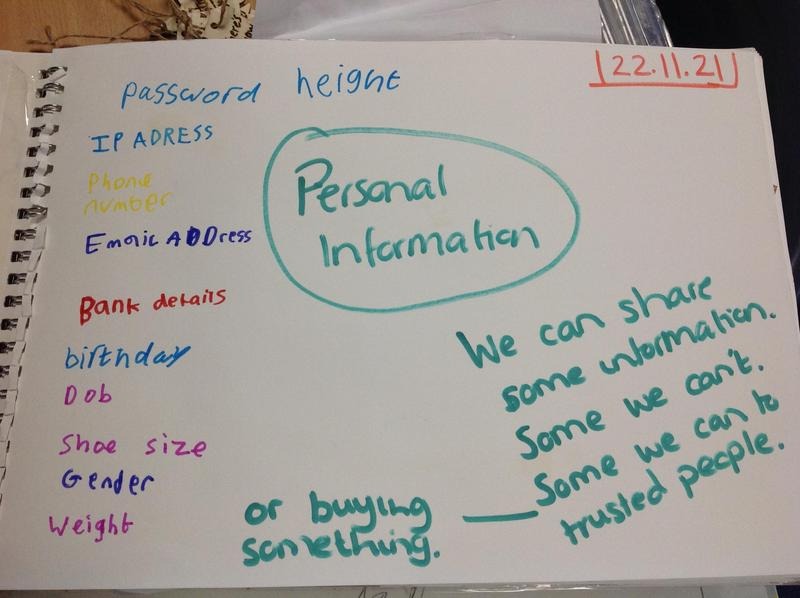 22.11.21
password height
IP ADRESS
Phone
number
Email ADDress
Bank details
birthday
Dob
Shoe size
Gender
Weight
Personal
Information
We can share
some information.
Some we can't.
Some we can to
trusted people.
or buying
something.